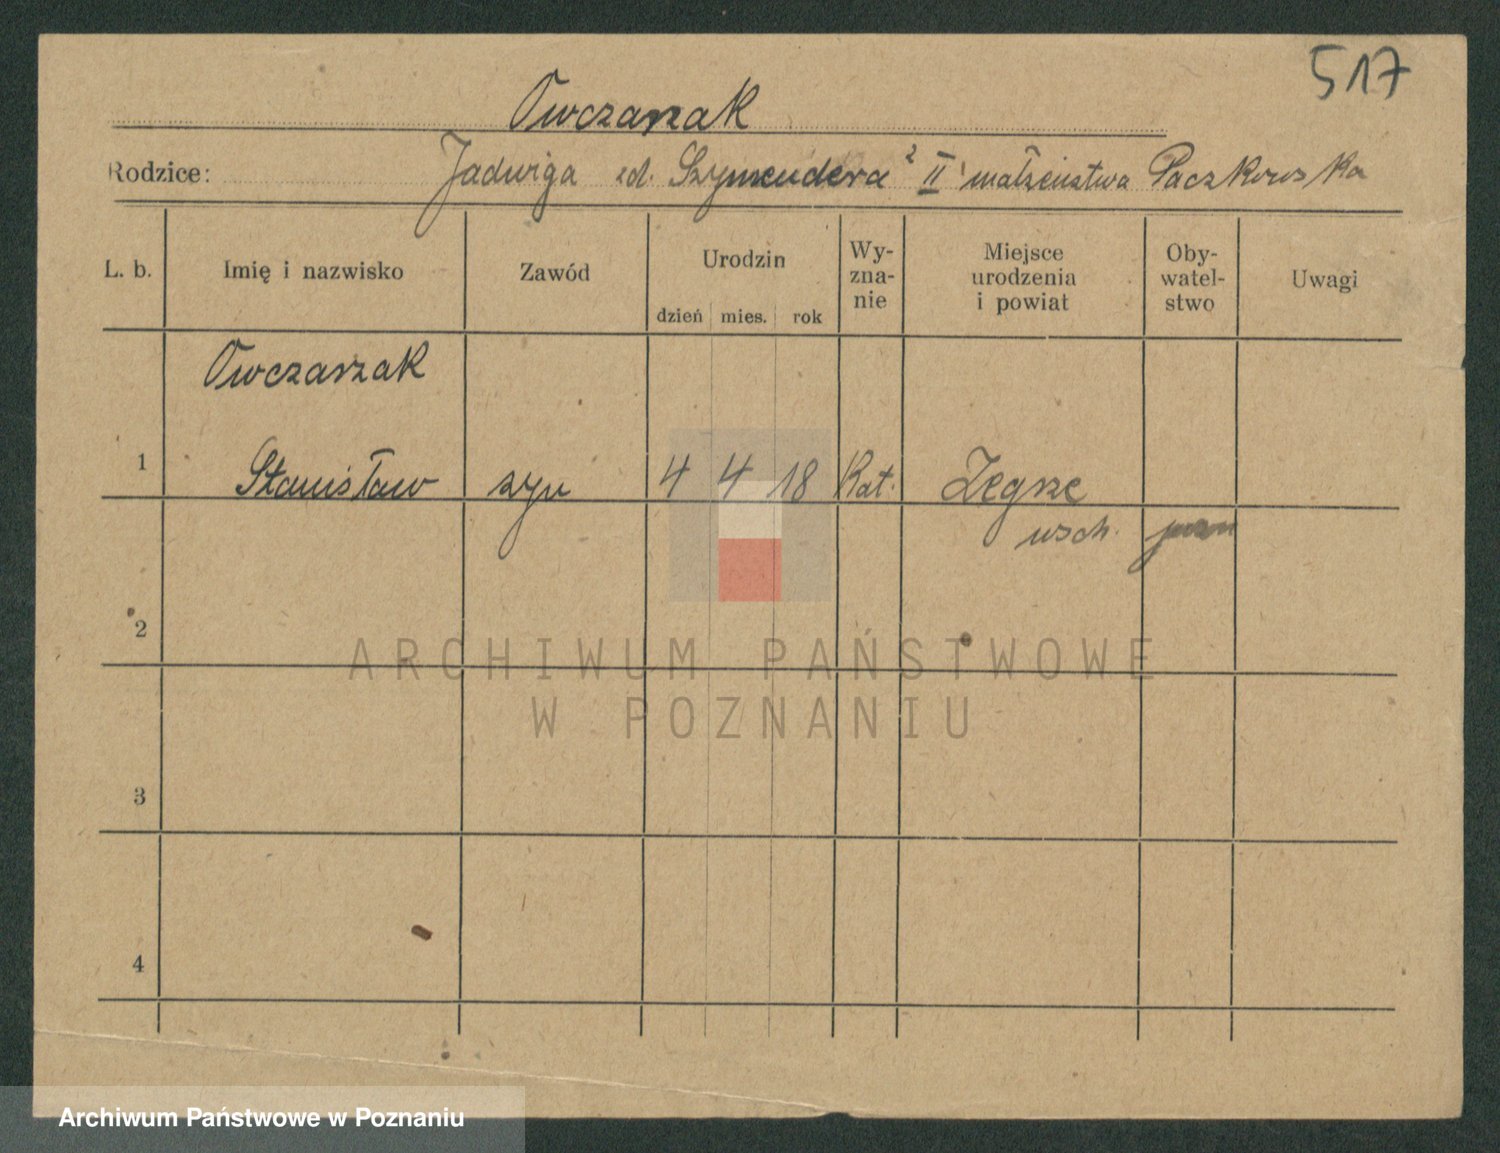 517
Owczarzak
Rodzice: Jadwiga zd. Szymendera z II małżeństwa Paczkowska
L. b. Imię i nazwisko Zawód Urodzin dzień mies. rok Wy-zna-nie Miejsce urodzenia i powiat Oby-watel-stwo Uwagi
Owczarzak
1 Stanisław syn 4 4 18 Kat. Zegrze
wsch.
2
3
4
ARCHIWUM PAŃSTWOWE
W POZNANIU
Archiwum Państwowe w Poznaniu